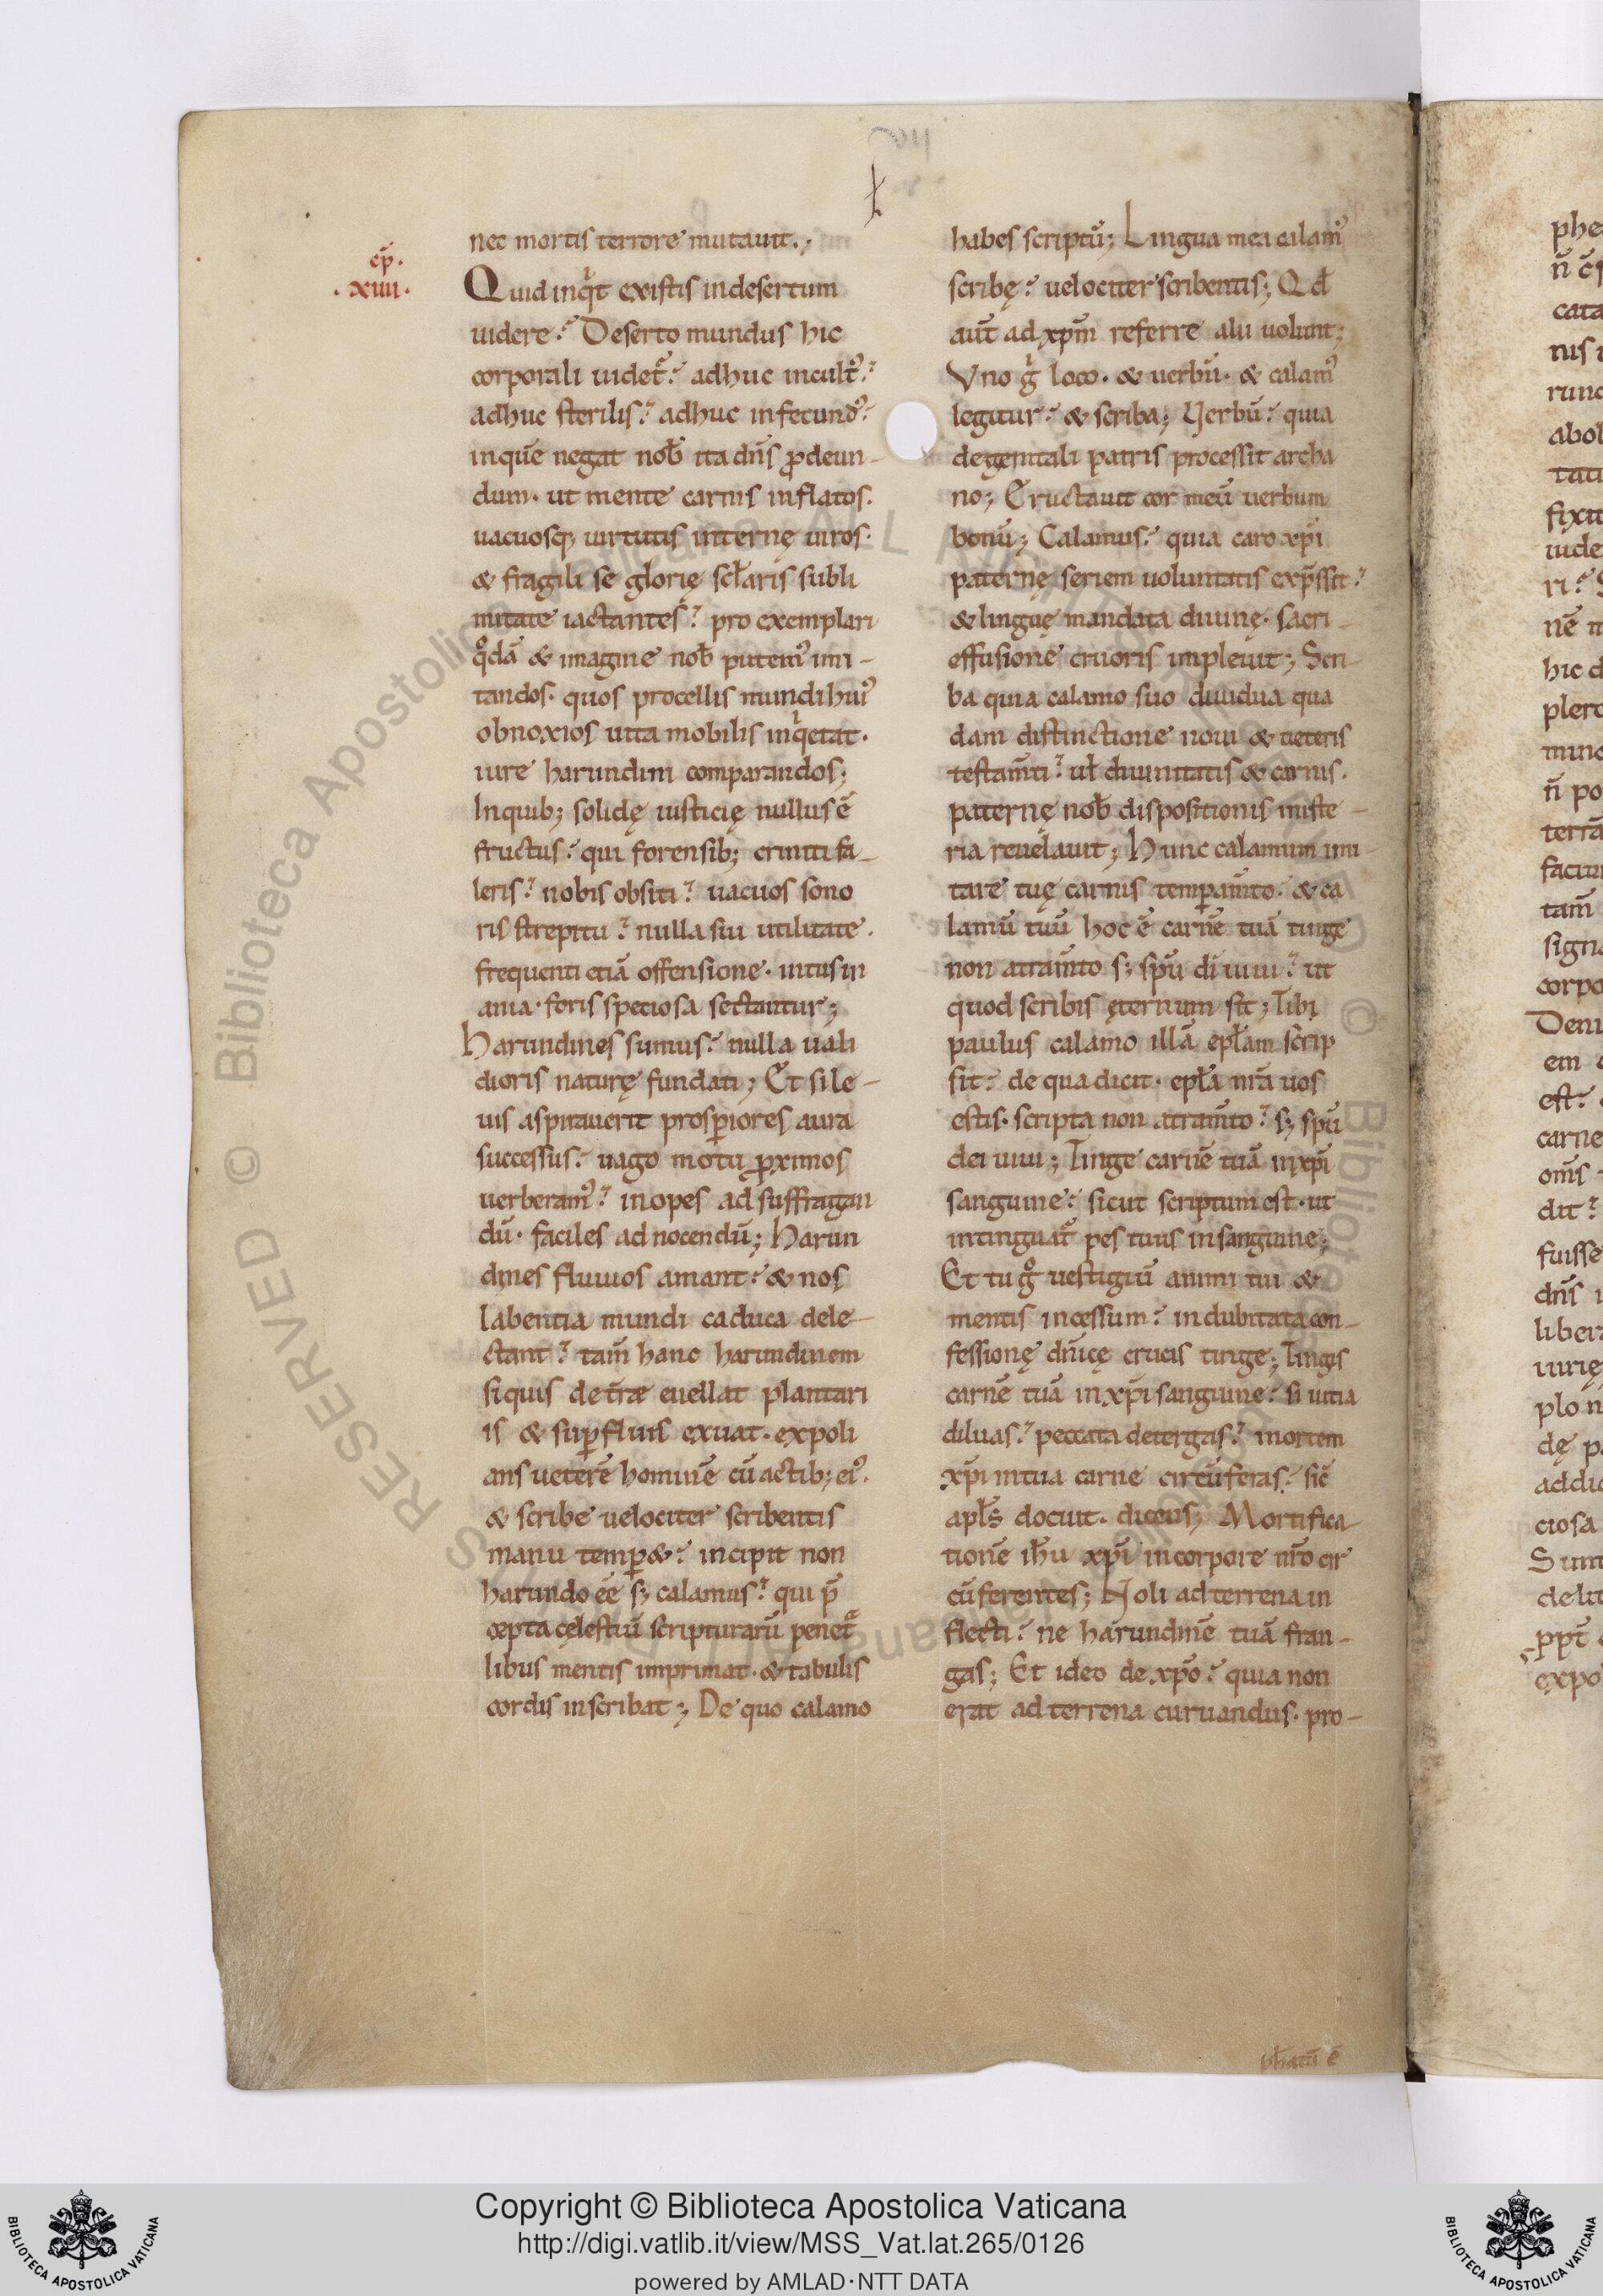 cp̄.
.xiiii.
nec mortis terrore mutauit.,
Quid inqͥt existis indesertum
uidere? Deserto mundus hic
corporali uidet᷑? adhuc incultꝰ?
adhuc sterilis? adhuc infecundꝰ?
inquē negat nob̄ ita dn̄s ꝓdeun-
dum. ut mente carnis inflatos.
uacuosq; uirtutis internę uiros.
& fragili se glorię scl̄aris subli
mitate iactantes? pro exemplari
qͦdā & imagine nob̄ putemꝰ imi-
tandos. quos procellis mundi huiꝰ
obnoxios uita mobilis inqͥetat.
iure harundini comparandos;
Inquib; solidę iusticię nullus ē
fructus? qui forensib; criniti fa-
leris? nobis obsiti? uacuos sono
ris strepitu? nulla sui utilitate.
frequenti etiā offensione. intus in
ania. foris speciosa sectantur;
Harundines sumus? nulla uali
dioris naturę fundati; Et si le-
uis aspirauerit prosꝑiores aura
successus? uago motu ꝓximos
uerberamꝰ? inopes ad suffragan
dū. faciles ad nocendū; Harun
dines fluuios amant? & nos
labentia mundi caduca dele-
ctant? tam̄ hanc harundinem
siquis de tr̄æ euellat plantari
is & suꝑfluis exuat. expoli
ans ueterē hominē cū actib; eiꝰ.
& scribe uelociter scribentis
manu temꝑ&? incipit non
harundo ēē s; calamus? qui p̄
cepta cęlestiū scripturarū penet᷑
libus mentis imprimat. & tabulis
cordis inscribat; De quo calamo
habes scriptū; Lingua mea calamꝰ
scribę? uelociter scribentis; Qđ
aut̄ ad xp̄m referre alii uolunt;
Vno gͥ loco. & uerbū. & calamꝰ
legitur? & scriba; Verbū? quia
de genitali patris processit archa
no; Eructauit cor meū uerbum
bonū; Calamus? quia caro xp̄i
paternę seriem uoluntatis exp̄ssit?
& linguę mandata diuinę. sacri-
effusione cruoris impleuit; Scri-
ba quia calamo suo diuidua qua
dam distinctione noui & ueteris
testam̄ti? ul̄ diuinitatis & carnis.
paternę nob̄ dispositionis miste-
ria reuelauit; Hunc calamum imi-
tare tuę carnis temꝑam̄to. & ca
lamū tuū hoc ē carnē tuā tinge
non atram̄to s; sp̄u di uiui? ut
quod scribis ęternum sit; Tibi
paulus calamo illā epl̄am scrip
sit? de qua dicit. epl̄a nr̄a uos
estis. scripta non atram̄to? s; sp̄u
dei uiui; Tinge carnē tuā in xp̄i
sanguine? sicut scriptum est. ut
intinguat᷑ pes tuus in sanguine;
Et tu gͦ uestigiū animi tui &
mentis incessum? indubitata con-
fessionę dn̄icę crucis tinge; Tingis
carnē tuā in xp̄i sanguine? si uitia
diluas? peccata detergas? mortem
xp̄i in tua carne circūferas? sic̄
apl̄s docuit. dicens; Mortifica
tionē ih̄u xp̄i in corpore nr̄o cir
cūferentes; Noli ad terrena in
flecti? ne harundinē tuā fran-
gas; Et ideo de xp̄o? quia non
erat ad terrena curuandus. pro-
ph̄atū ē
Copyright © Biblioteca Apostolica Vaticana
http://digi.vatlib.it/view/MSS_Vat.lat.265/0126
powered by AMLAD·NTT DATA